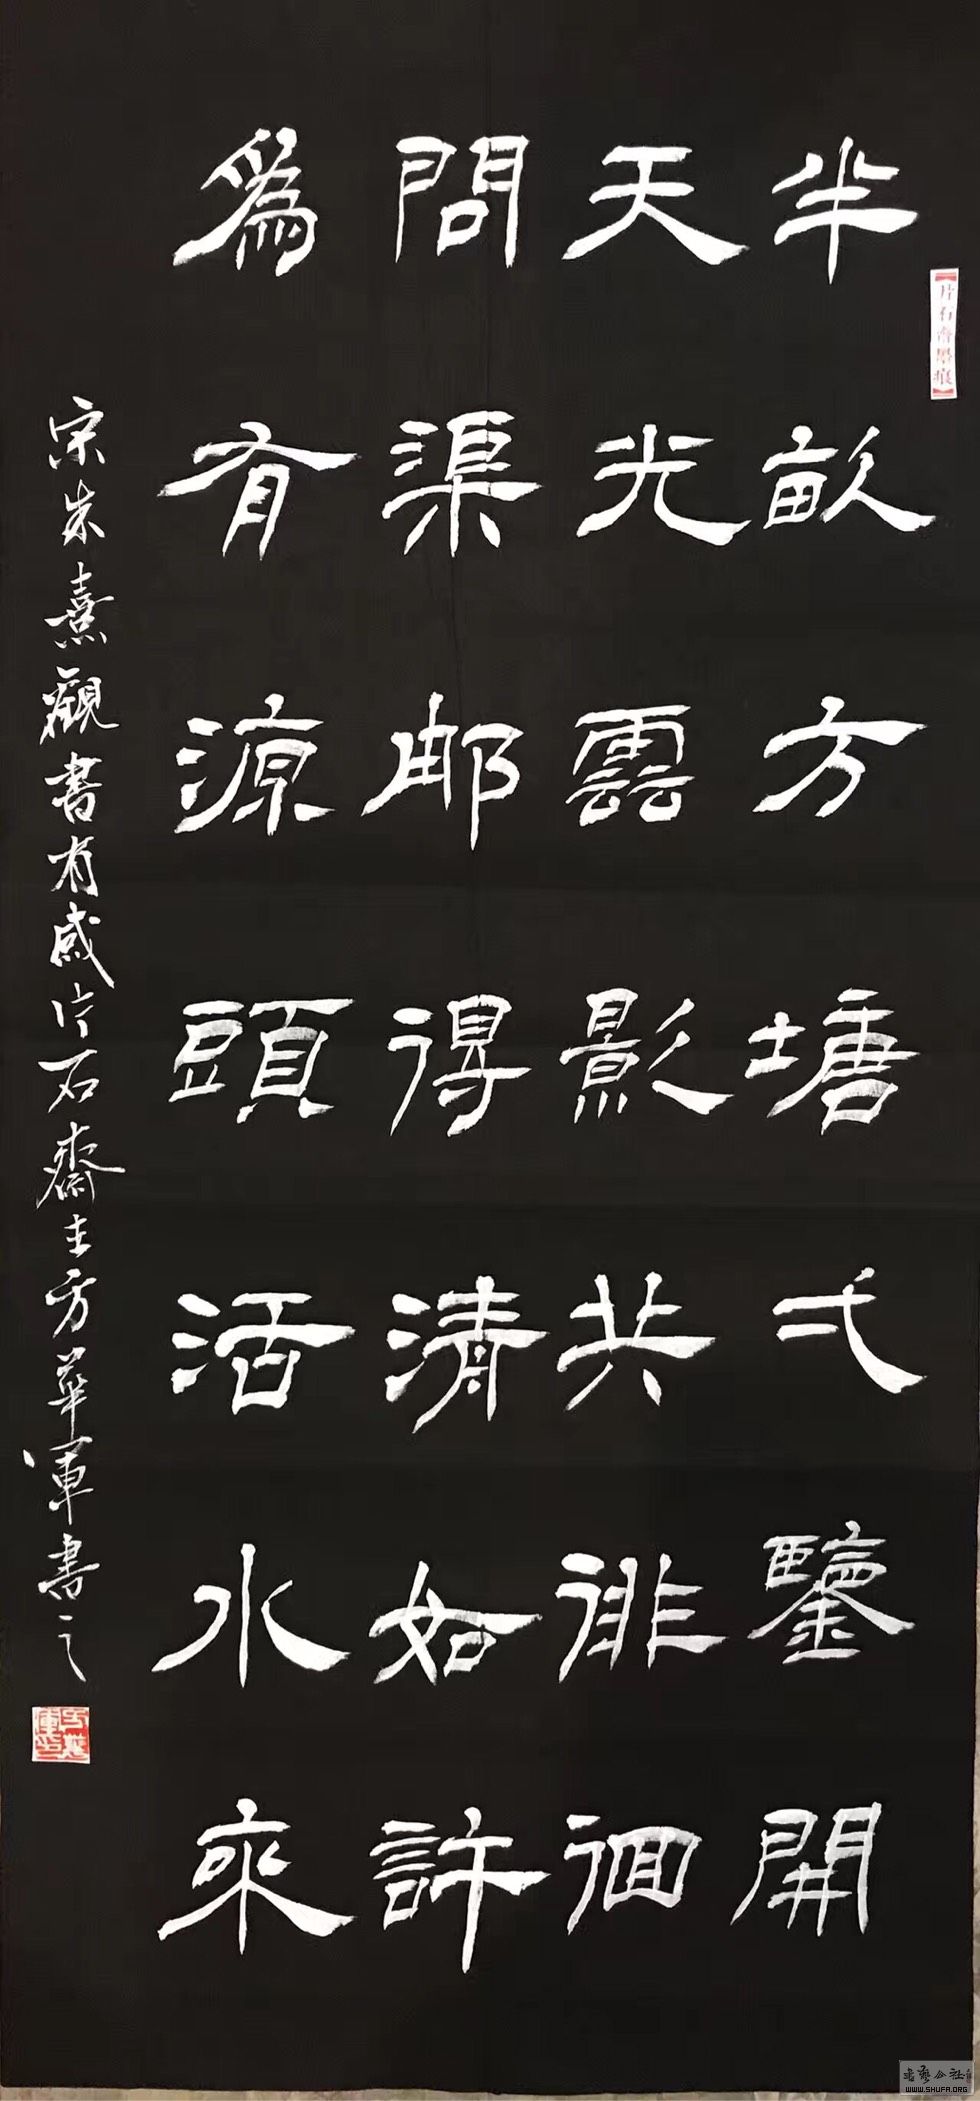 半畝方塘弌鑒開
天光雲影共徘徊
問渠那得清如許
爲有源頭活水來
宋朱熹觀書有感片石齋主方華軍書之
片石齋墨痕
方華軍印
書藝公社
WWW.SHUFA.ORG